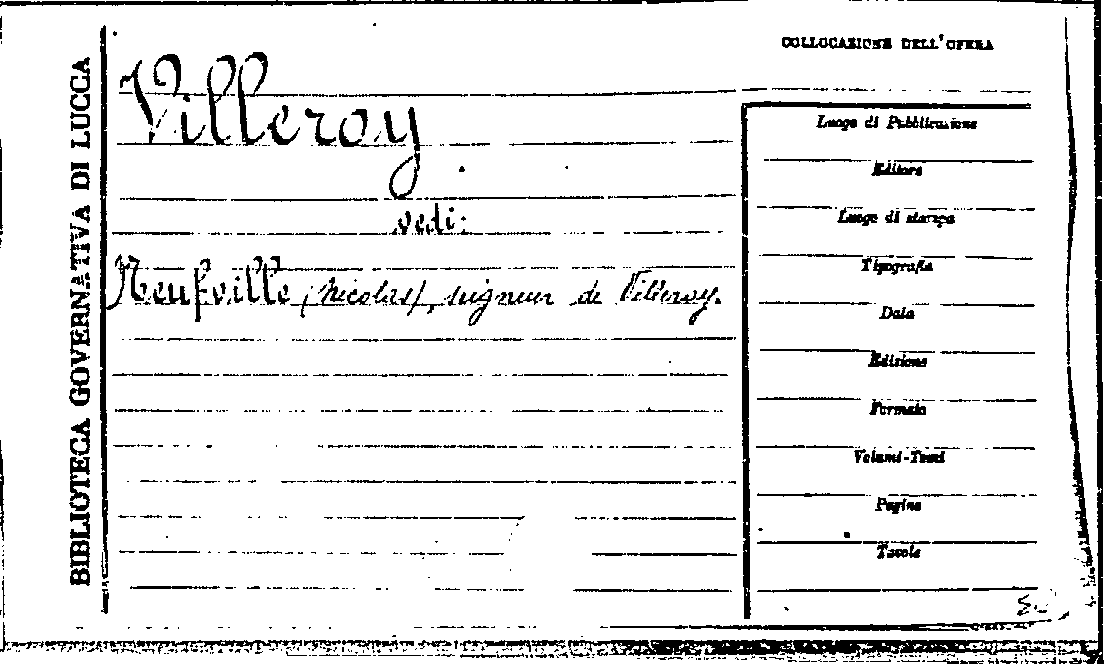 BIBLIOTECA GOVERNATIVA DI LUCCA
COLLOCAZIONE DELL'OPERA
Villeroy
vedi:
Neufville (Nicolas), seigneur de Villeroy.
Luogo di Pubblicazione
Editore
Luogo di stampa
Tipografia
Data
Edizione
Formato
Volumi-Tomi
Pagine
Tavole